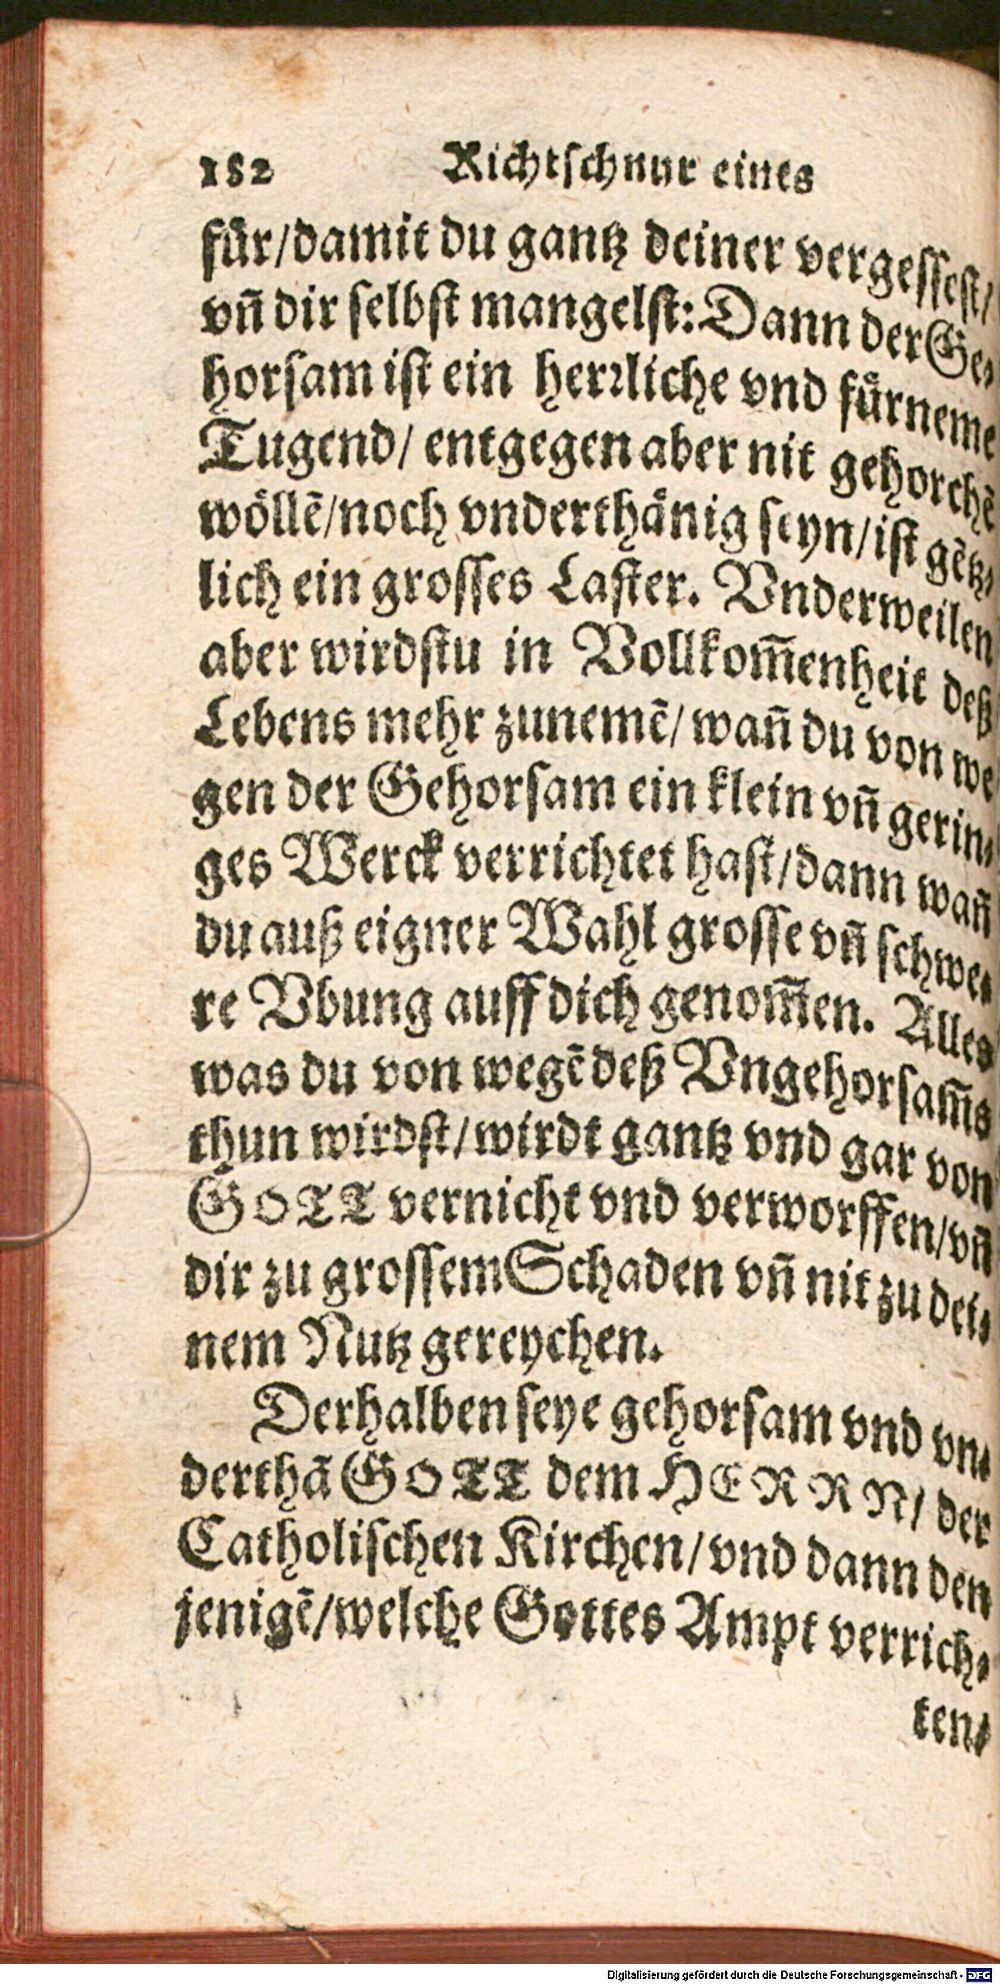 182 Richtschnur eines
für/damit du gantz deiner vergessest/
vñ dir selbst mangelst: Dann der Ge⸗
horsam ist ein herꝛliche vnd fürneme
Tugend/ entgegen aber nit gehorchẽ
wöllẽ/noch vnderthänig seyn/ist gẽtz⸗
lich ein grosses Laster. Vnderweilen
aber wirdstu in Vollkom̃enheit deß
Lebens mehr zunemẽ/ wañ du von we
gen der Gehorsam ein klein vñ gerin⸗
ges Werck verrichtet hast/dann wañ
du auß eigner Wahl grosse vñ schwe⸗
re Vbung auff dich genom̃en. Alles
was du von wegẽ deß Vngehorsam̃s
thun wirdst/wirdt gantz vnd gar von
GOTT vernicht vnd verworffen/vñ
dir zu grossem Schaden vñ nit zu dei⸗
nem Nutz gereychen.
Derhalben seye gehorsam vnd vn⸗
derthã GOTT dem HERRN/ der
Catholischen Kirchen/vnd dann den
jenigẽ/welche Gottes Ampt verrich⸗
ten/
Digitalisierung gefördert durch die Deutsche Forschungsgemeinschaft - DFG